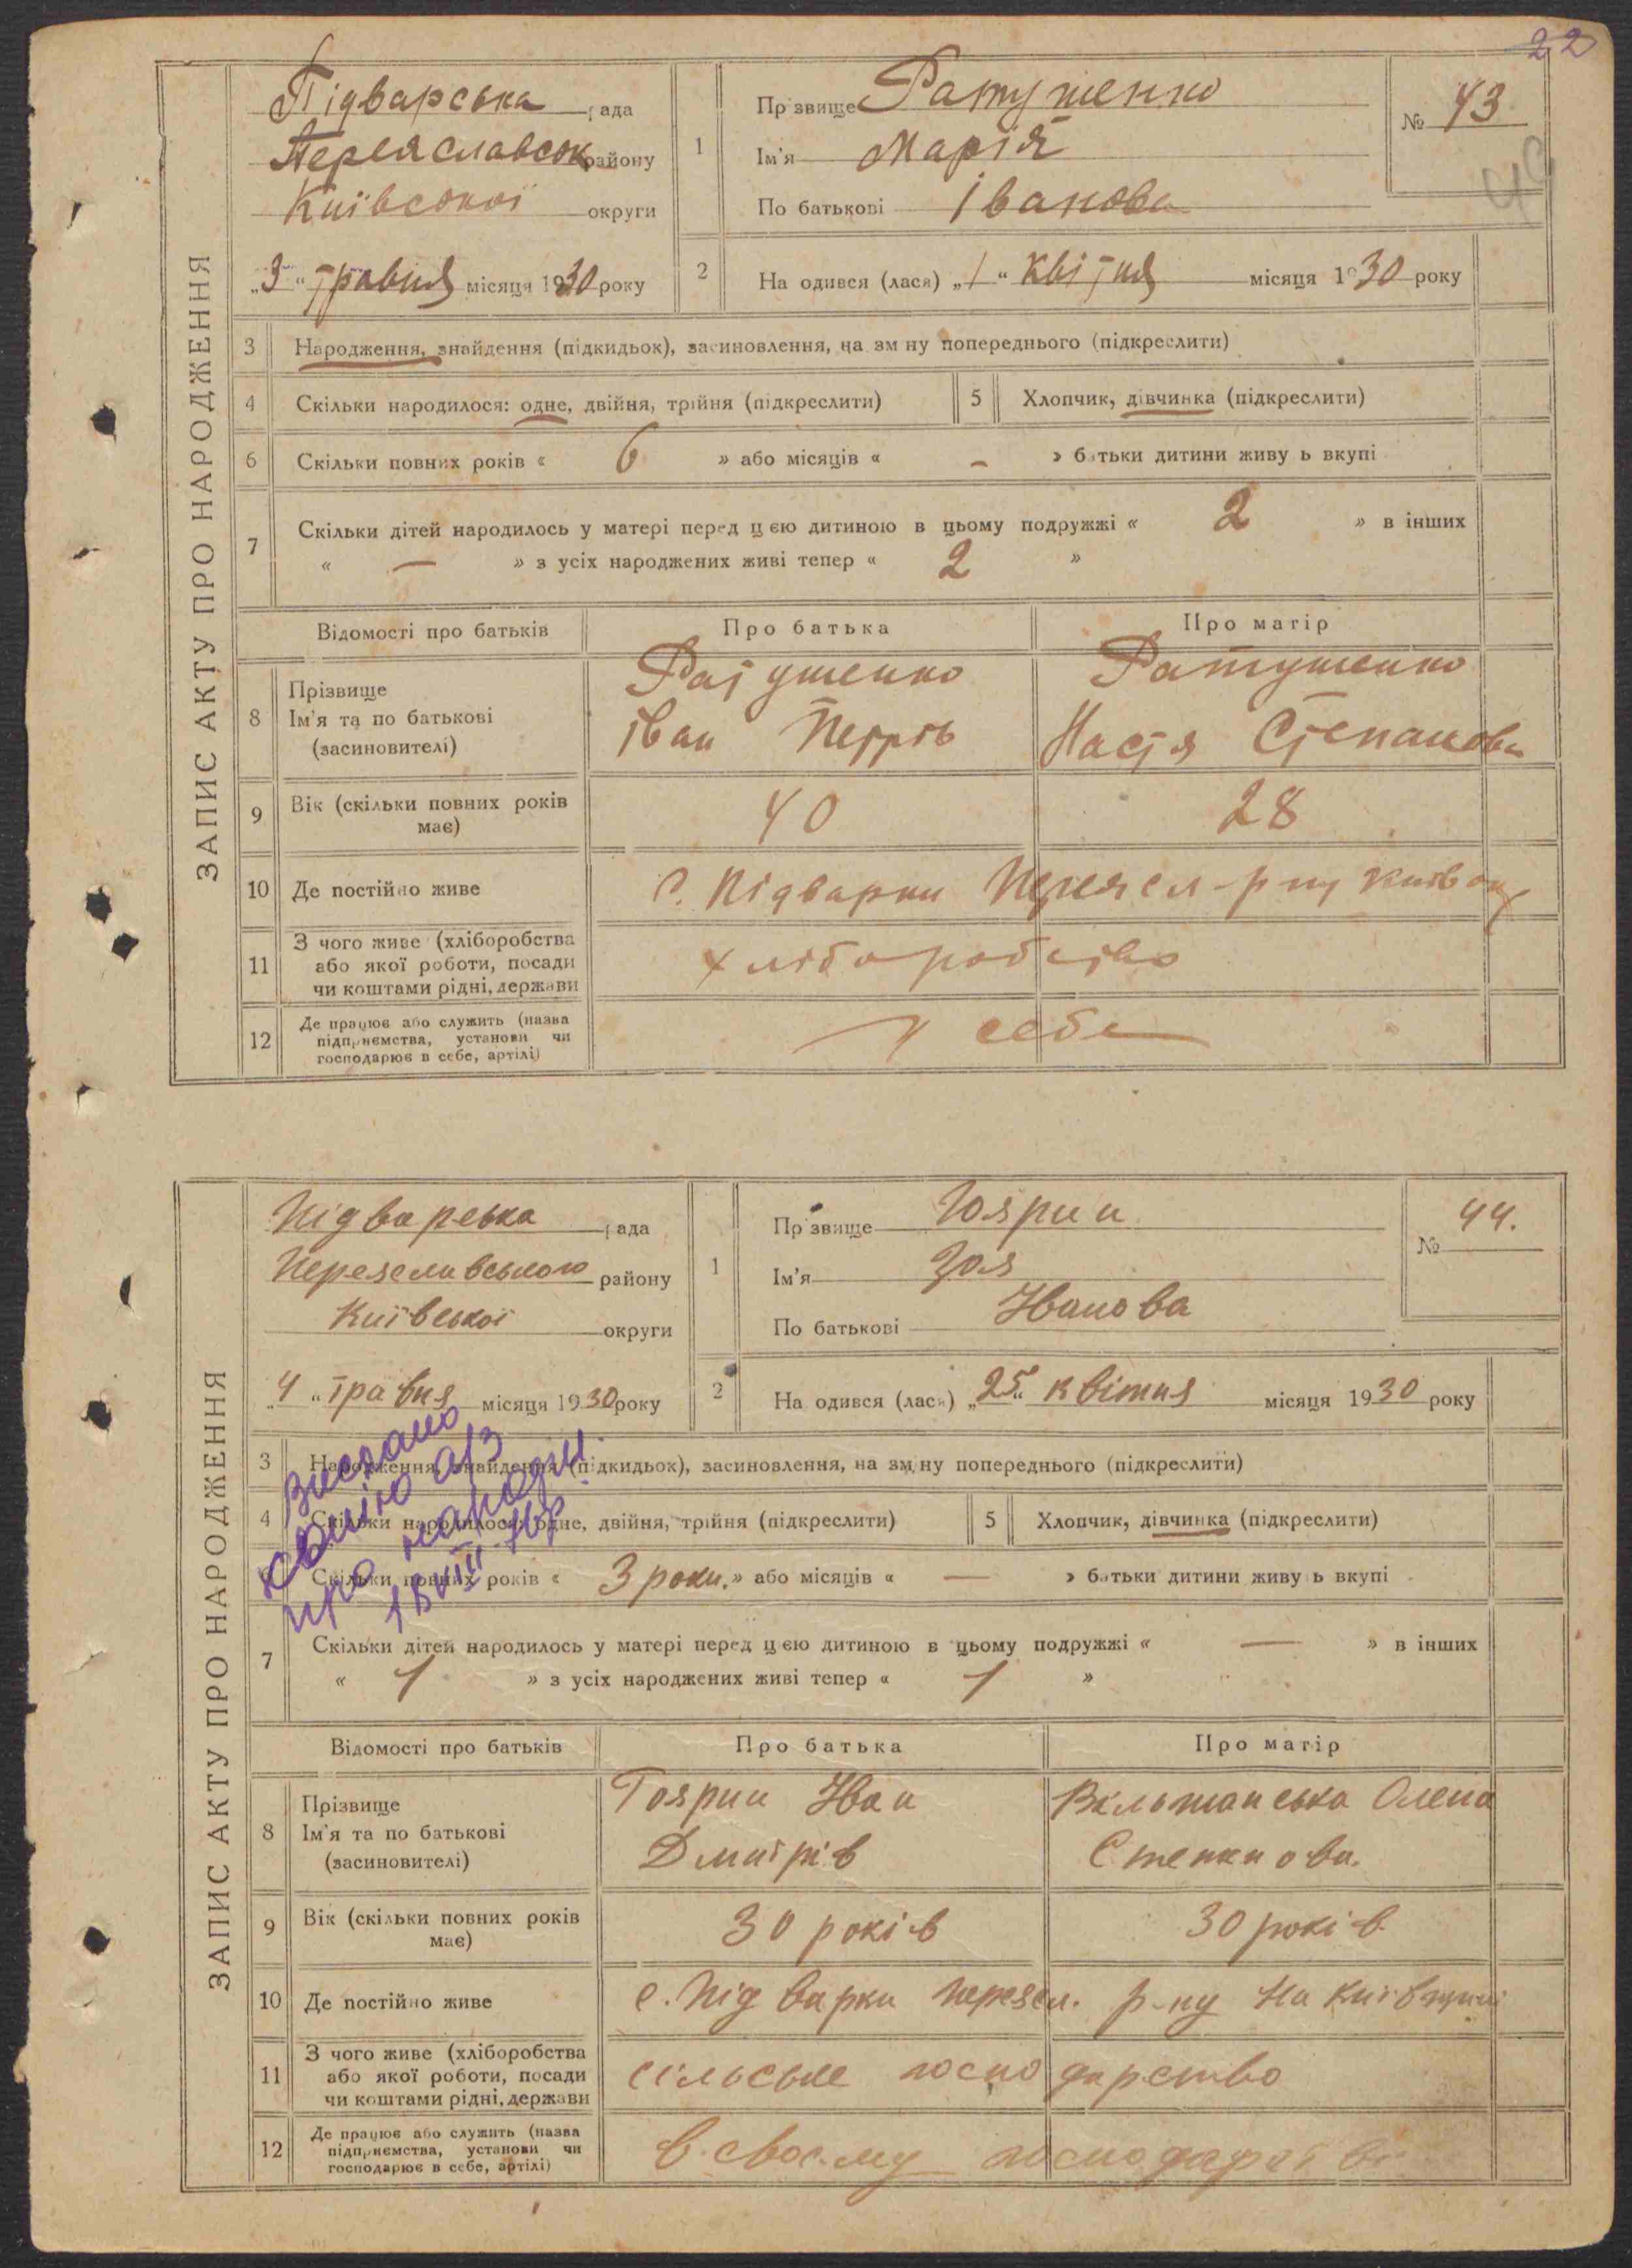 22
ЗАПИС АКТУ ПРО НАРОДЖЕННЯ
Підварська рада
Переяславськ району
Київської округи
„3“ травня місяця 1930 року
1
Прізвище Ратушенко
Ім'я Марія
По батькові Іванова
№ 43
2
На одився (лася) „1“ Квітня місяця 1930 року
3 Народження, знайдення (підкидьок), засиновлення, на зм ну попереднього (підкреслити)
4 Скільки народилося: одне, двійня, трійня (підкреслити) 5 Хлопчик, дівчинка (підкреслити)
6 Скільки повних років « 6 » або місяців « – » батьки дитини живу ь вкупі
7 Скільки дітей народилось у матері перед цією дитиною в цьому подружжі « 2 » в інших
« — » з усіх народжених живі тепер « 2 »
Відомості про батьків Про батька Про матір
8 Прізвище Ім'я та по батькові (засиновителі)
Ратушенко Іван Петрів
Ратушенко Настя Степанова
9 Вік (скільки повних років має) 40 28
10 Де постійно живе с. Підварки Переясл-р-ну
11 З чого живе (хліборобства або якої роботи, посади чи коштами рідні, держави хліборобство
12 Де працює або служить (назва підприємства, установи чи господарює в себе, артілі) у себе
ЗАПИС АКТУ ПРО НАРОДЖЕННЯ
Підварська рада
Переяславського району
Київської округи
„4“ травня місяця 1930 року
1
Прізвище Гоярин
Ім'я Зоя
По батькові Иванова
№ 44.
2
На одився (лася) „25“ квітня місяця 1930 року
3 Народження, знайдення (підкидьок), засиновлення, на зміну попереднього (підкреслити)
4 Скільки народилося: одне, двійня, трійня (підкреслити) 5 Хлопчик, дівчинка (підкреслити)
Скільки повних років « 3 роки. » або місяців « — » батьки дитини живу ь вкупі
про народж.
7 Скільки дітей народилось у матері перед цією дитиною в цьому подружжі « — » в інших
« 1 » з усіх народжених живі тепер « 1 »
Відомості про батьків Про батька Про матір
8 Прізвище Ім'я та по батькові (засиновителі)
Гоярин Иван Дмитрів
Вільшанська Олена Степанова.
9 Вік (скільки повних років має) 30 років 30 років
10 Де постійно живе с. Підварки Переясл. р-ну на Київщині
11 З чого живе (хліборобства або якої роботи, посади чи коштами рідні, держави сільське господарство
12 Де працює або служить (назва підприємства, установи чи господарює в себе, артілі) в своєму господарстві